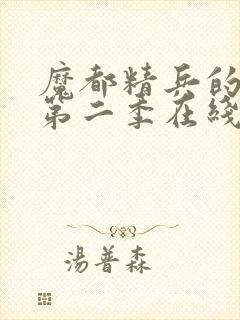 魔都精兵的
第二季在綫
湯普森